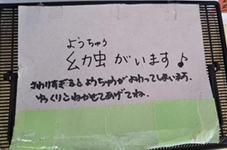 ようちゅう
幼虫がいます♪
さわりすぎるとようちゅうがよわってしまいます。
ゆっくりこねかせてあげてね。